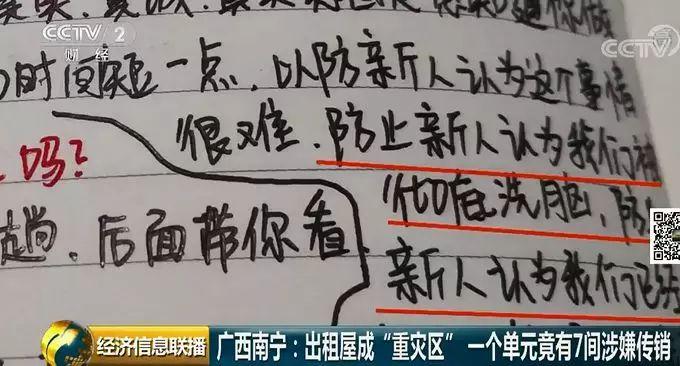 CCTV 2
财经
CCTV
时间短一点，以防新人认为这个事情
很难，防止新人认为我们被
吗？
他口后洗脑，防止
趟，后面带你看
新人认为我们已经
经济信息联播
广西南宁：出租屋成“重灾区” 一个单元竟有7间涉嫌传销